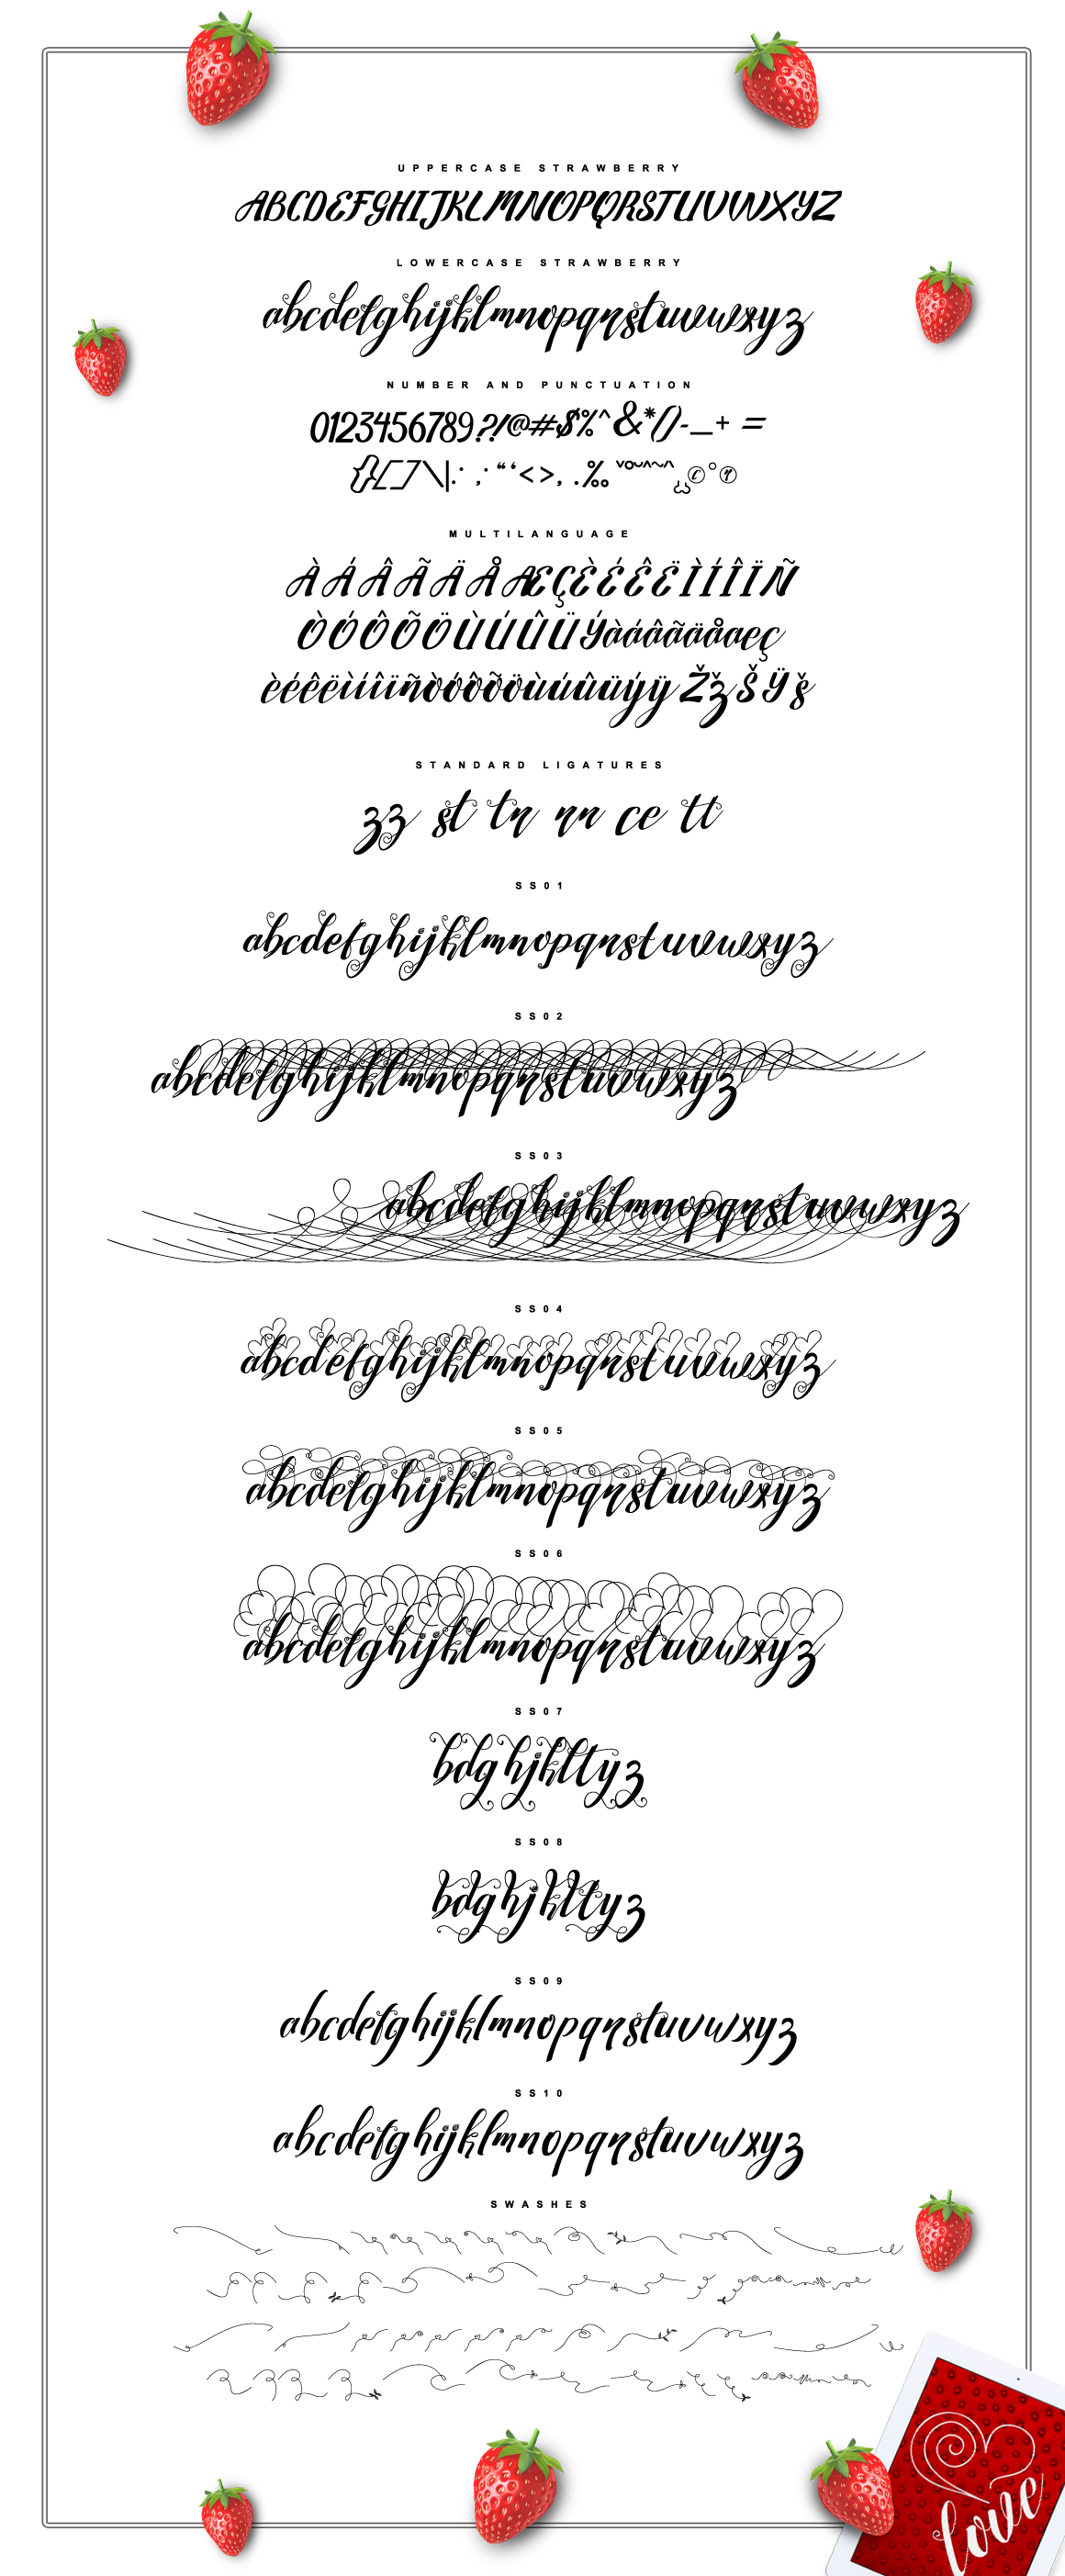 UPPERCASE STRAWBERRY
ABCDEFGHIJKLMNOPQRSTUVWXYZ
LOWERCASE STRAWBERRY
abcdefghijklmnopqrstuvwxyz
NUMBER AND PUNCTUATION
0123456789?!@#$%^&*()-_+ =
{}[]\|:· ;·“‘<>, .‰ ˇ°˘^~^ ¿©°®
MULTILANGUAGE
ÀÁÂÃÄÅÆÇÈÉÊËÌÍÎÏÑ
ÒÓÔÕÖÙÚÛÜÝàáâãäåæç
èéêëìíîïñòóôõöùúûüýÿŽžŠŸš
STANDARD LIGATURES
zz st tr rr ce tt
SS01
abcdefghijklmnopqrstuvwxyz
SS02
abcdefghijklmnopqrstuvwxyz
SS03
abcdefghijklmnopqrstuvwxyz
SS04
abcdefghijklmnopqrstuvwxyz
SS05
abcdefghijklmnopqrstuvwxyz
SS06
abcdefghijklmnopqrstuvwxyz
SS07
bdghjkltyz
SS08
bdghjkltyz
SS09
abcdefghijklmnopqrstuvwxyz
SS10
abcdefghijklmnopqrstuvwxyz
SWASHES
love